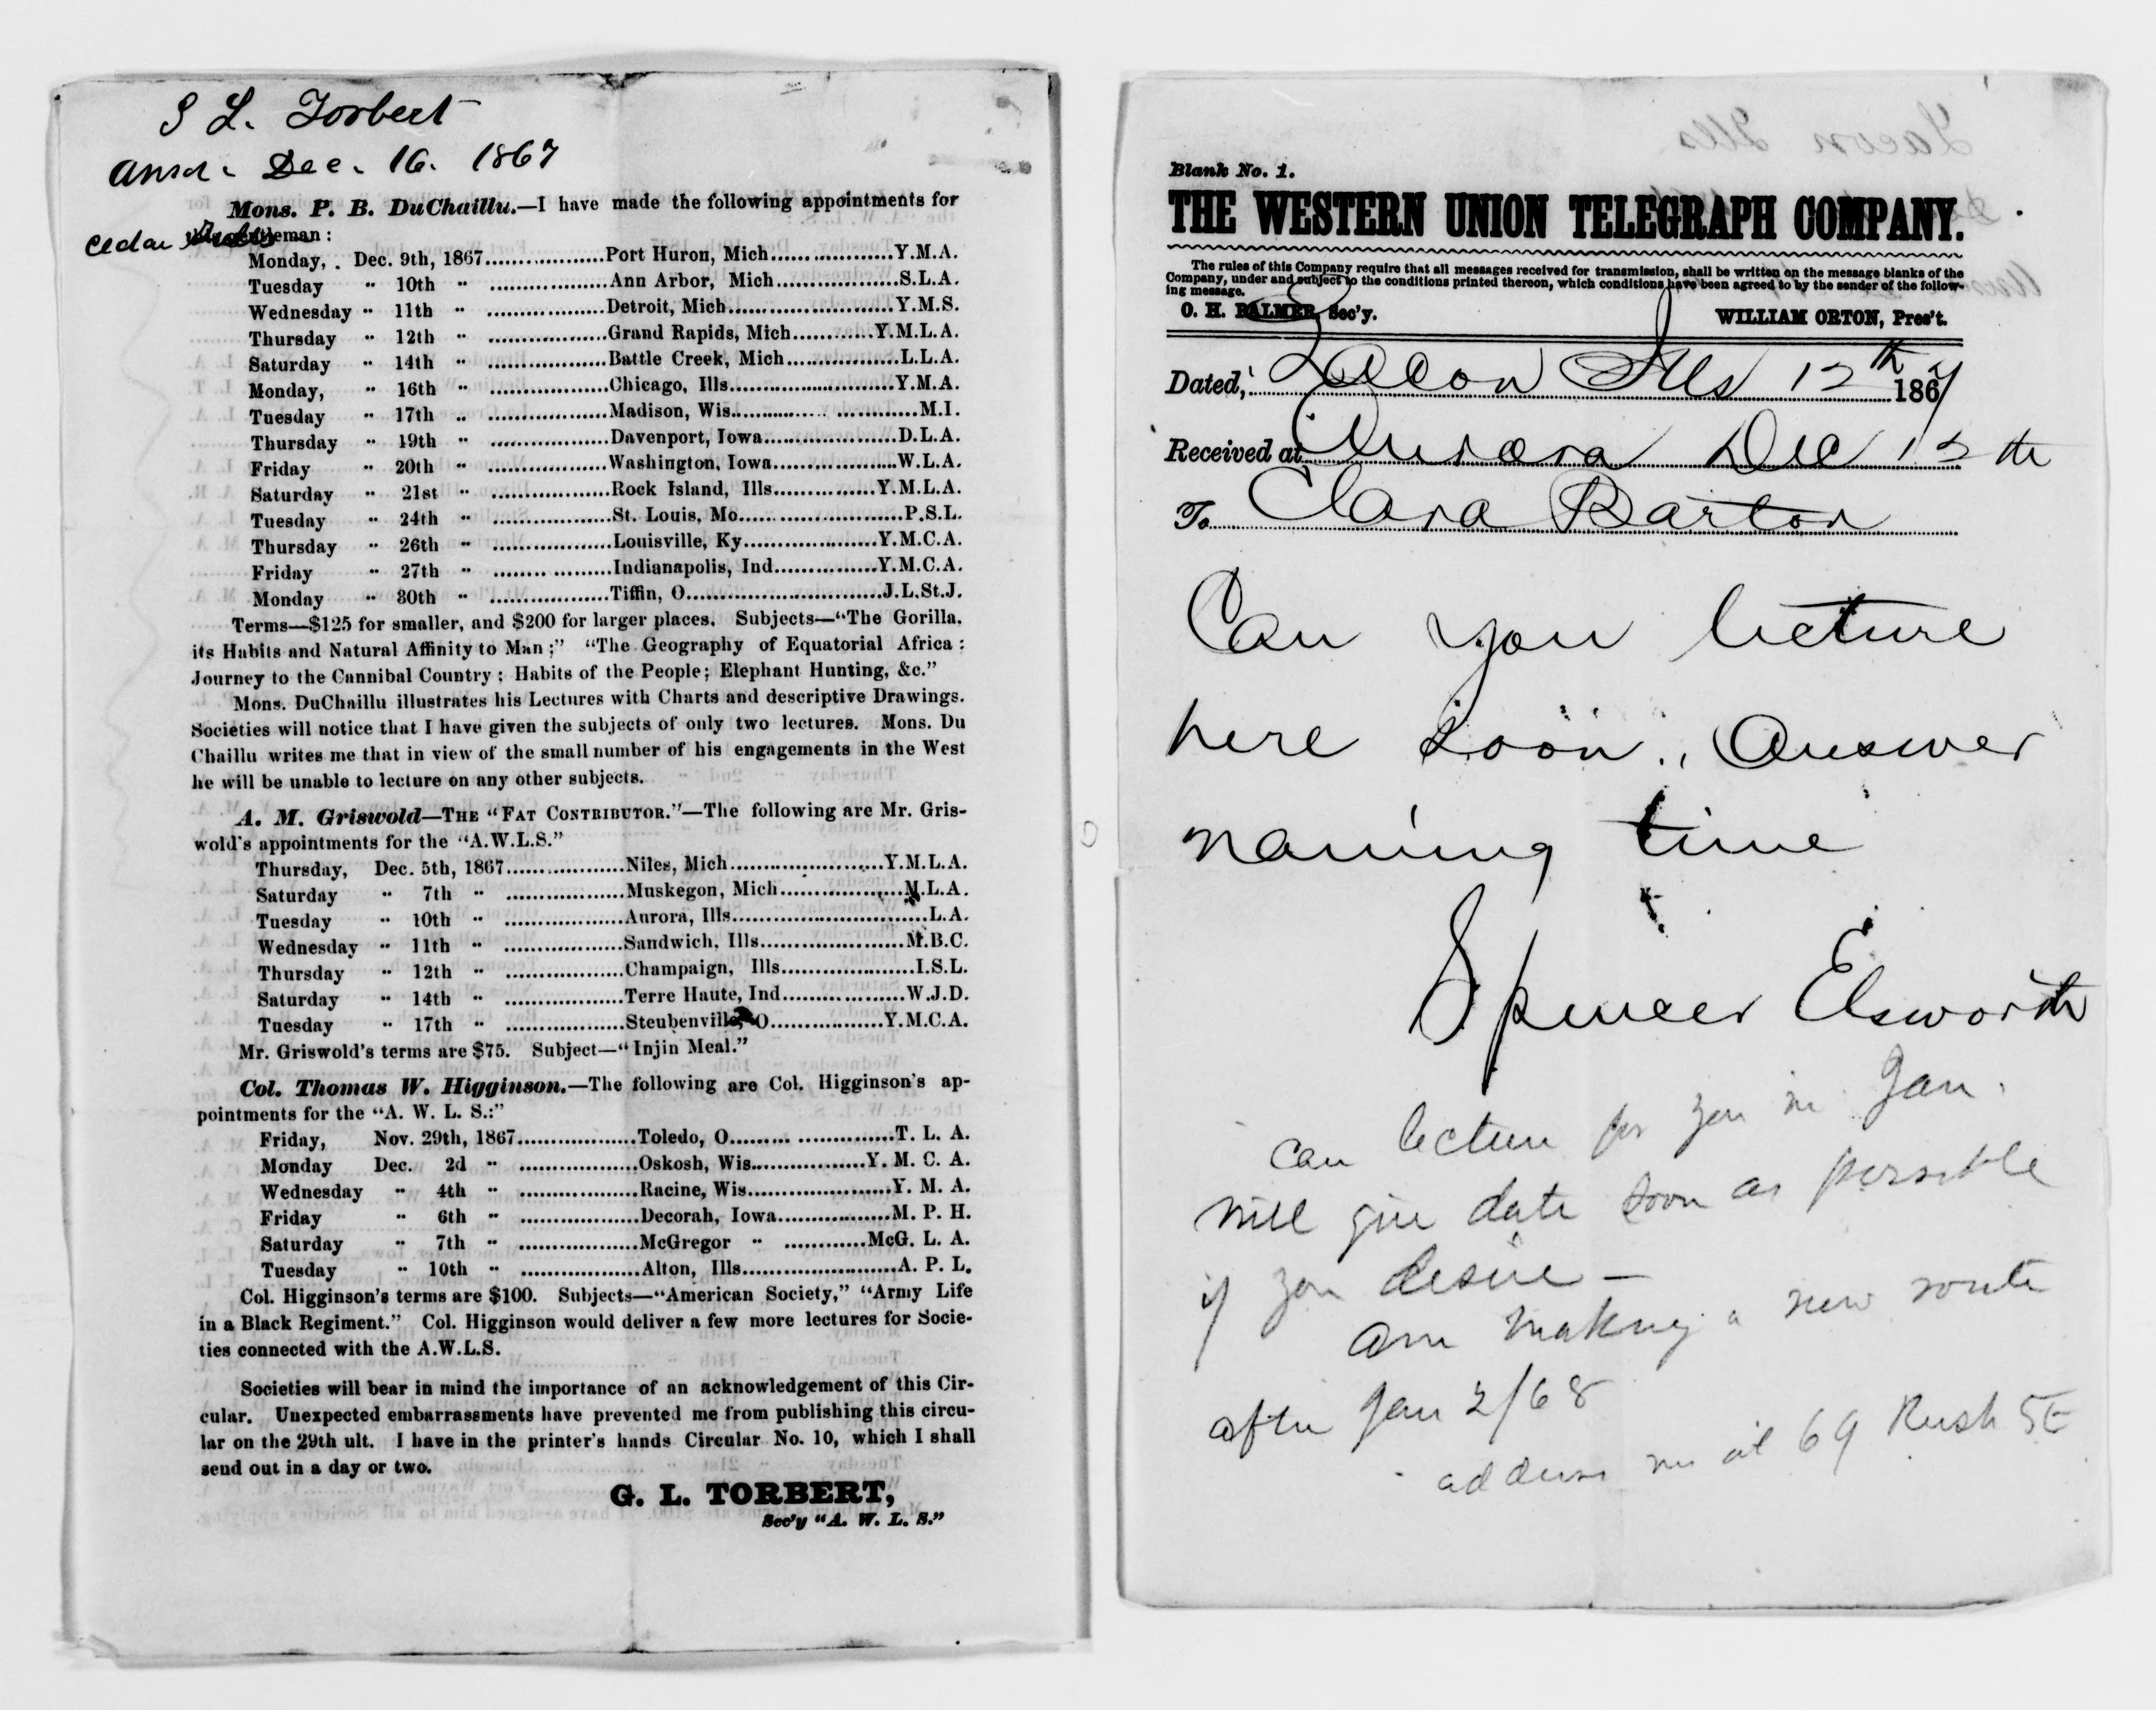 S L. Torbert
Ansd. Dec. 16. 1867
Mons. P. B. DuChaillu.—I have made the following appointments for
Cedar
gentleman :
Monday, . Dec. 9th, 1867..................Port Huron, Mich..................Y.M.A.
Tuesday " 10th " ..................Ann Arbor, Mich..................S.L.A.
Wednesday " 11th " ..................Detroit, Mich........................Y.M.S.
Thursday " 12th " ..................Grand Rapids, Mich............Y.M.L.A.
Saturday " 14th " ..................Battle Creek, Mich................L.L.A.
Monday, " 16th " ..................Chicago, Ills........................Y.M.A.
Tuesday " 17th " ..................Madison, Wis..........................M.I.
Thursday " 19th " ..................Davenport, Iowa....................D.L.A.
Friday " 20th " ..................Washington, Iowa..................W.L.A.
Saturday " 21st " ..................Rock Island, Ills...............Y.M.L.A.
Tuesday " 24th " ..................St. Louis, Mo........................P.S.L.
Thursday " 26th " ..................Louisville, Ky....................Y.M.C.A.
Friday " 27th " ..................Indianapolis, Ind...............Y.M.C.A.
Monday " 30th " ..................Tiffin, O............................J.L.St.J.
Terms—$125 for smaller, and $200 for larger places. Subjects—"The Gorilla,
its Habits and Natural Affinity to Man ;" "The Geography of Equatorial Africa :
Journey to the Cannibal Country ; Habits of the People; Elephant Hunting, &c."
Mons. DuChaillu illustrates his Lectures with Charts and descriptive Drawings.
Societies will notice that I have given the subjects of only two lectures. Mons. Du
Chaillu writes me that in view of the small number of his engagements in the West
he will be unable to lecture on any other subjects.
A. M. Griswold—THE "FAT CONTRIBUTOR."—The following are Mr. Gris-
wold's appointments for the "A.W.L.S."
Thursday, Dec. 5th, 1867..................Niles, Mich.......................Y.M.L.A.
Saturday " 7th " ..................Muskegon, Mich...................M.L.A.
Tuesday " 10th " ..................Aurora, Ills.............................L.A.
Wednesday " 11th " ..................Sandwich, Ills.....................M.B.C.
Thursday " 12th " ..................Champaign, Ills....................I.S.L.
Saturday " 14th " ..................Terre Haute, Ind..................W.J.D.
Tuesday " 17th " ..................Steubenville, O.................Y.M.C.A.
Mr. Griswold's terms are $75. Subject—"Injin Meal."
Col. Thomas W. Higginson.—The following are Col. Higginson's ap-
pointments for the "A. W. L. S.:"
Friday, Nov. 29th, 1867..................Toledo, O.........................T. L. A.
Monday Dec. 2d " ..................Oskosh, Wis.................Y. M. C. A.
Wednesday " 4th " ..................Racine, Wis......................Y. M. A.
Friday " 6th " ..................Decorah, Iowa.................M. P. H.
Saturday " 7th " ..................McGregor " ............McG. L. A.
Tuesday " 10th " ..................Alton, Ills........................A. P. L.
Col. Higginson's terms are $100. Subjects—"American Society," "Army Life
in a Black Regiment." Col. Higginson would deliver a few more lectures for Socie-
ties connected with the A.W.L.S.
Societies will bear in mind the importance of an acknowledgement of this Cir-
cular. Unexpected embarrassments have prevented me from publishing this circu-
lar on the 29th ult. I have in the printer's hands Circular No. 10, which I shall
send out in a day or two.
G. L. TORBERT,
Sec'y "A. W. L. S."
Lacon Ills
Blank No. 1.
THE WESTERN UNION TELEGRAPH COMPANY.
The rules of this Company require that all messages received for transmission, shall be written on the message blanks of the
Company, under and subject to the conditions printed thereon, which conditions have been agreed to by the sender of the follow-
ing message.
O. H. PALMER, Sec'y. WILLIAM ORTON, Pres't.
Dated, Lacon Ills 12th 1867
Received at Aurora Dec 12th
To Clara Barton
Can you lecture
here soon. Answer
naming time
Spencer Elsworth
Can lecture for you in Jan.
will give date soon as possible
if you desire —
Am making a new route
after Jan 2/68
address me at 69 Rush St